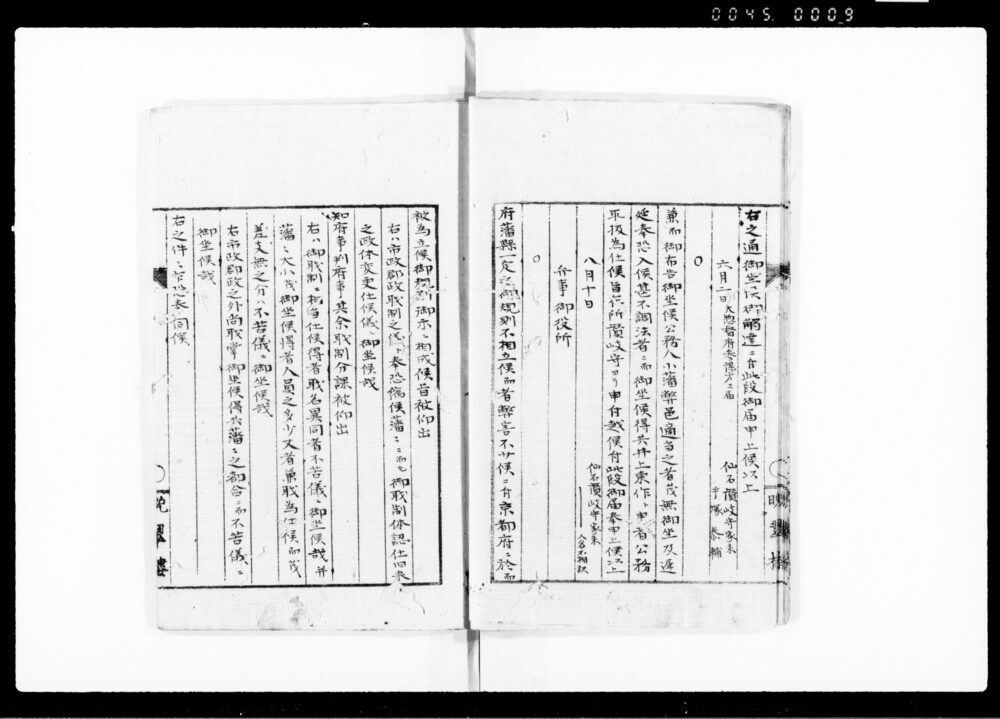 0045 0009
右之通御坐候御触達ニ付此段御届申上候以上
六月二日大惣督府参謀方ニ届
仙石讃岐守家来
手塚泰輔
○
兼而御布告御坐候公務人小藩弊邑適当之者茂無御坐及遅
延奉恐入候甚不調法者ニ而御坐候得共井上東作ト申者公務
取扱為仕候旨在所讃岐守ヨリ申付越候付此段御届奉申上候以上
仙石讃岐守家来
八月十日
人名不相訳
弁事御役所
○
府藩縣一定之御規則不相立候而者弊害不少候ニ付京都府ニ於而
被為立候御規則御示ニ相成候旨被仰出
右ハ市政郡政取制之儀ト奉恐儀候藩ニ而も御取制体認仕旧来
之政体変更仕候儀ニ御坐候哉
知府事判府事其余取制分課被仰出
右ハ御取制ニ相当仕候得者職名異同者不苦儀ニ御坐候哉并
藩ニ大小茂御坐候得者人員之多少又者兼職為仕候而茂
差支無之分ハ不苦儀ニ御坐候哉
右市政郡政之外尚職掌御坐候得共藩ニ之都合ニ而不苦儀ニ
御坐候哉
右之件ニ乍恐奉伺候
晩翠楼